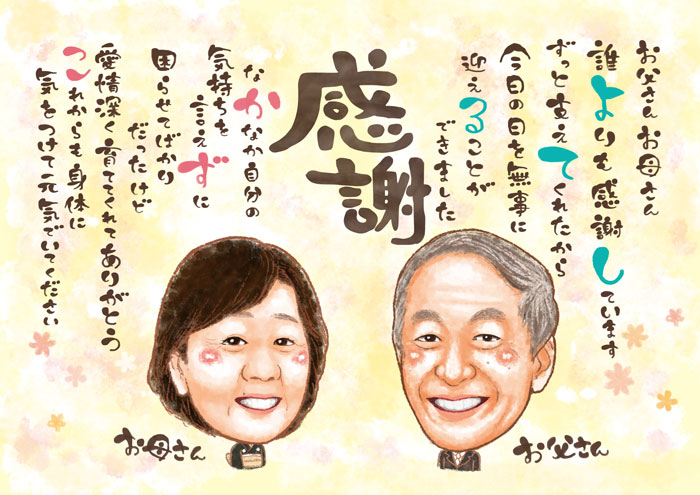 お父さんお母さん
誰よりも感謝しています
ずっと支えてくれたから
今日の日を無事に
迎えることが
できました
感謝
なかなか自分の
気持ちを
言えずに
困らせてばかり
だったけど
愛情深く育ててくれてありがとう
これからも身体に
気をつけて元気でいてください
お母さん
お父さん